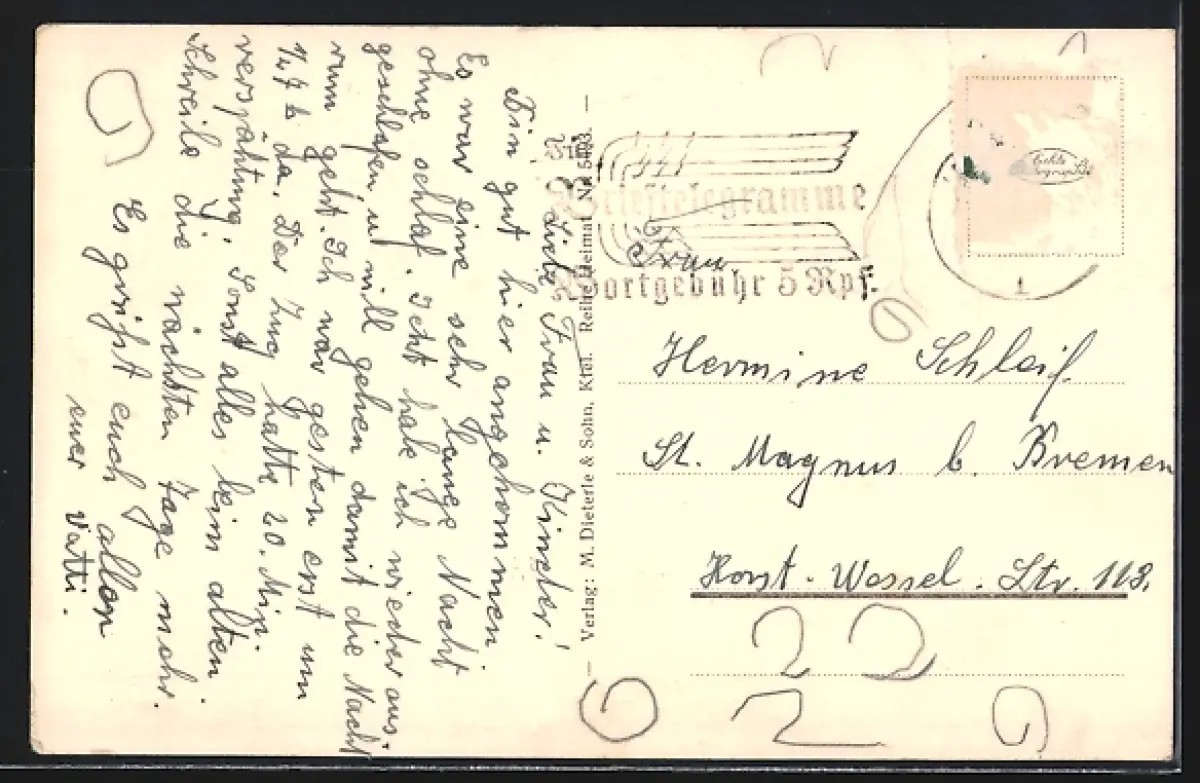 Liebe Frau u. Kinder!
Bin gut hier angekommen
Es war eine sehr lange Nacht
ohne schlaf. Jetzt habe ich wieder aus-
geschlafen u. will gehen damit die Nacht
rum geht. Ich war gestern erst um
1/4 7 h da. Der Zug hatte 20. Min.
verspähtung. Sonst alles beim alten
Schreibe die nächsten Tage mehr.
Es grüßt euch allen
euer Vatti.
Verlag: M. Dieterle & Sohn, Kiel. Reihe: Heimat Nr.
Brieftelegramme
Wortgebühr 5 Rpf.
Echte
Frau
Hermine Schleif
St. Magnus b. Bremen
Horst-Wessel-Str. 118.